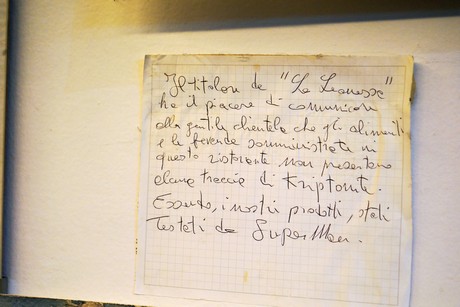 Il titolare de "La Leonessa"
ha il piacere di comunicare
alla gentile clientela che gli alimenti
e le bevande somministrate in
questo ristorante non presentano
alcuna traccia di Kriptonite.
Essendo, i nostri prodotti, stati
Testati da SuperMan.